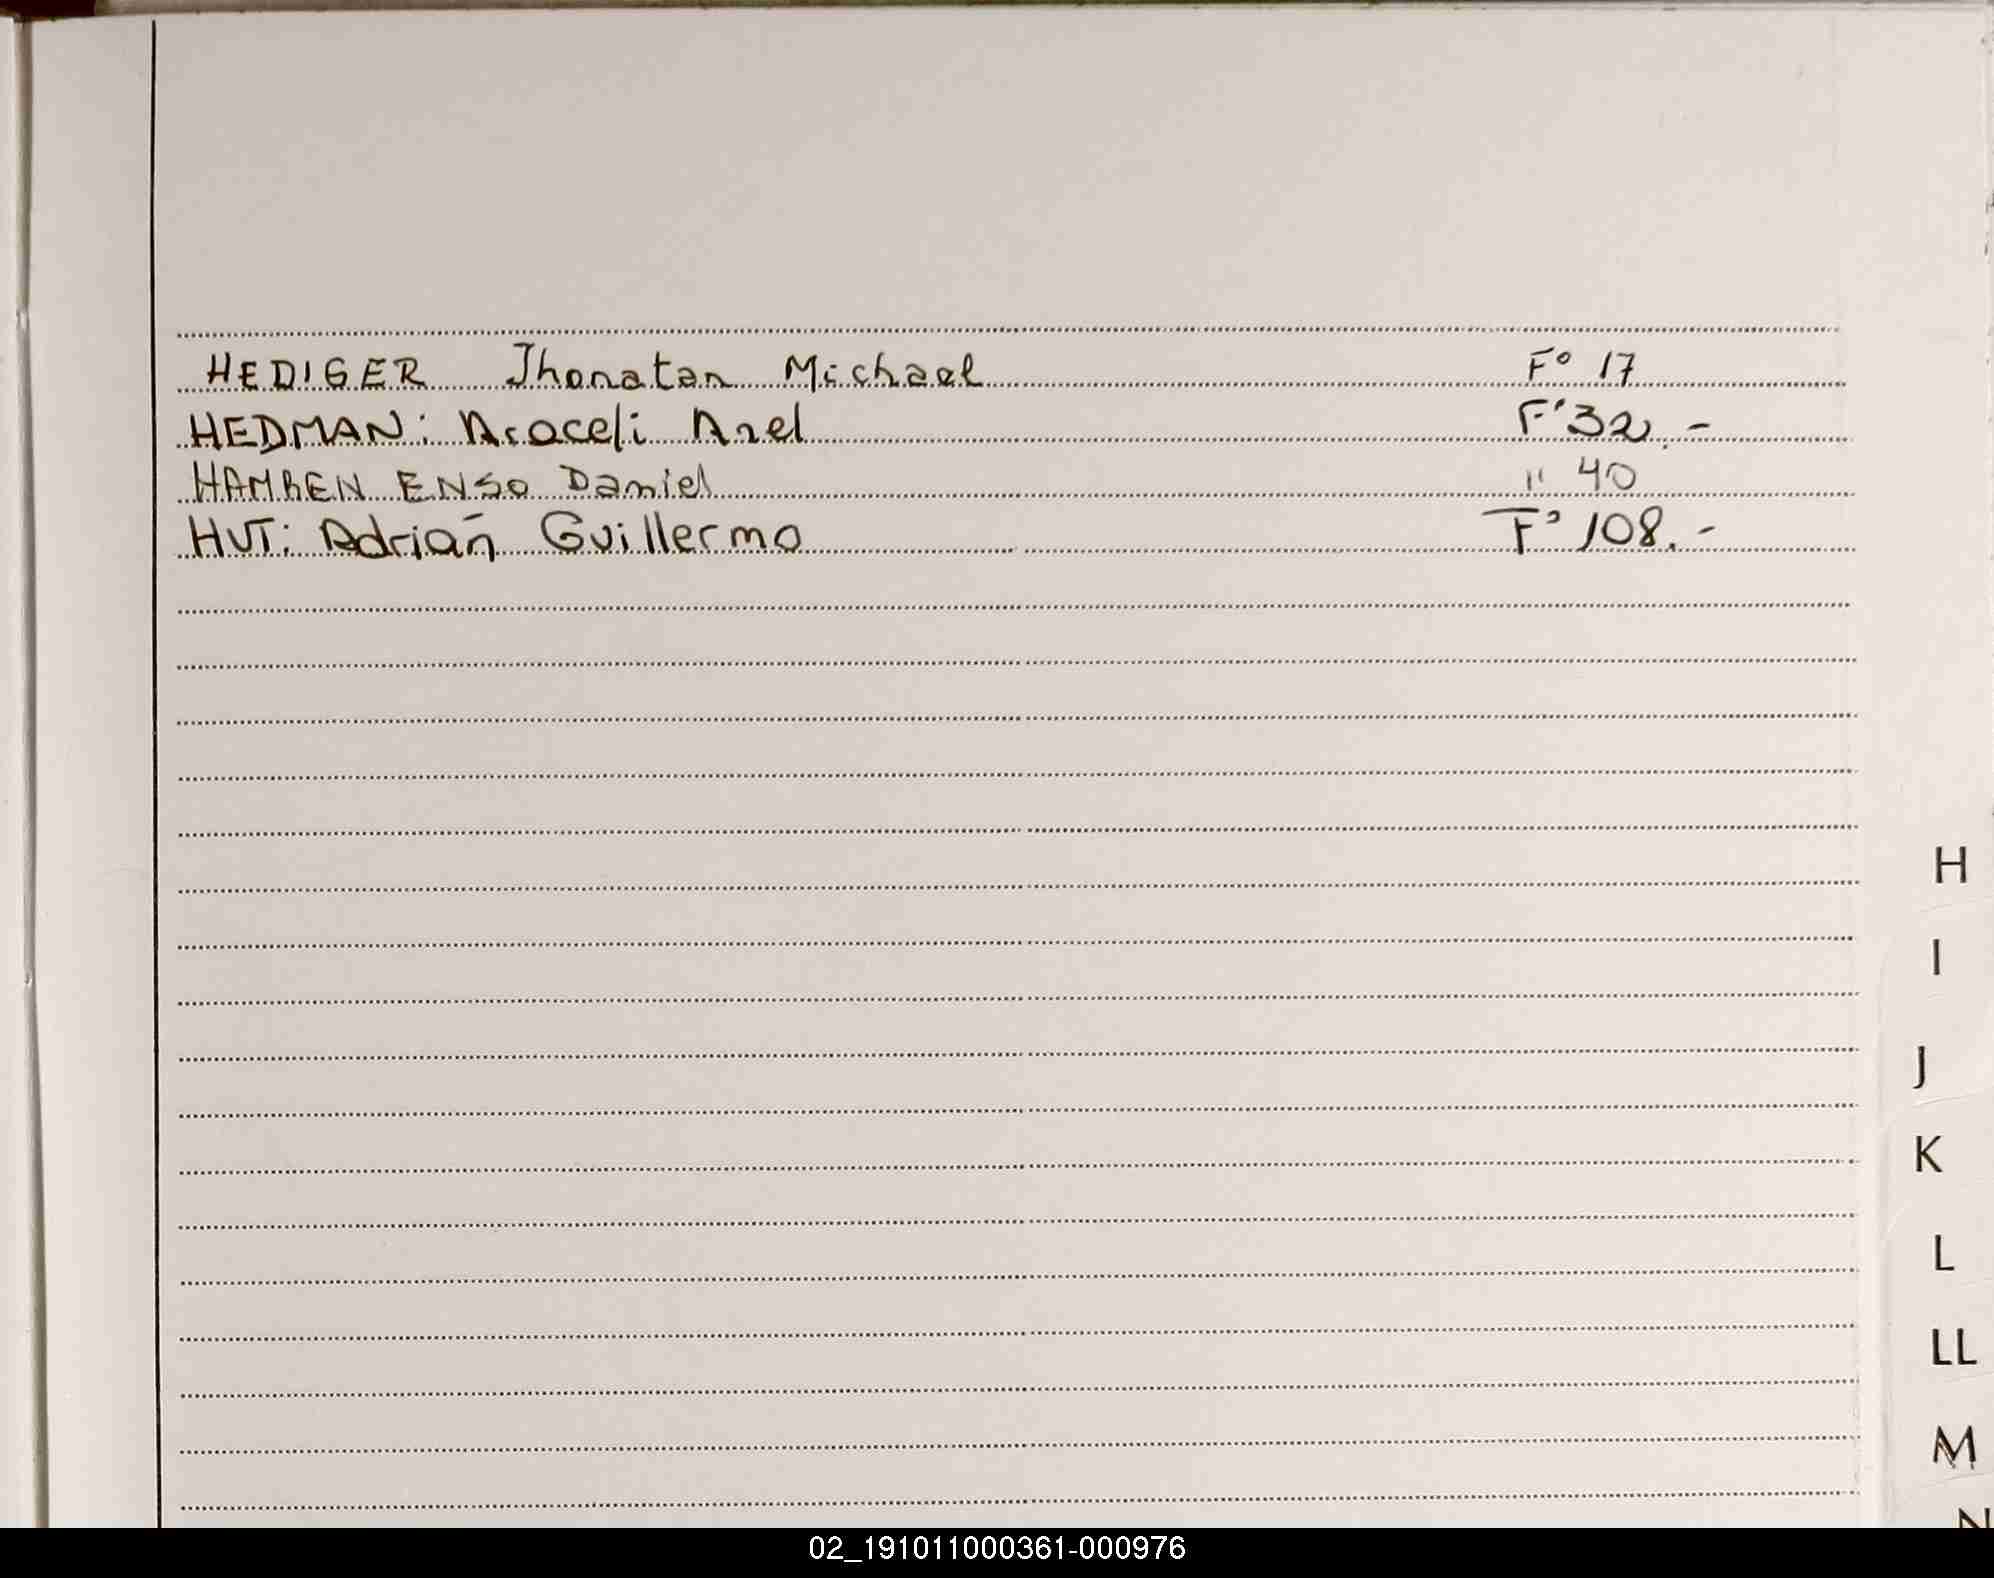 HEDIGER Jhonatan Michael F° 17
HEDMAN: Araceli Anel F° 32.-
HAMREN ENSO Daniel " 40
HUT: Adrián Guillermo F° 108.-
H
I
J
K
L
LL
M
N
02_191011000361-000976